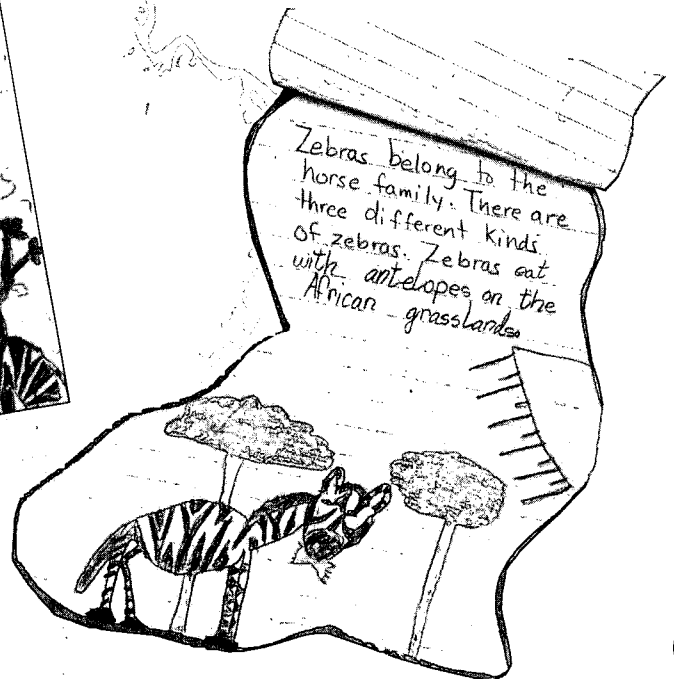 Zebras belong to the
horse family. There are
three different kinds
of zebras. Zebras eat
with antelopes on the
African grasslands.